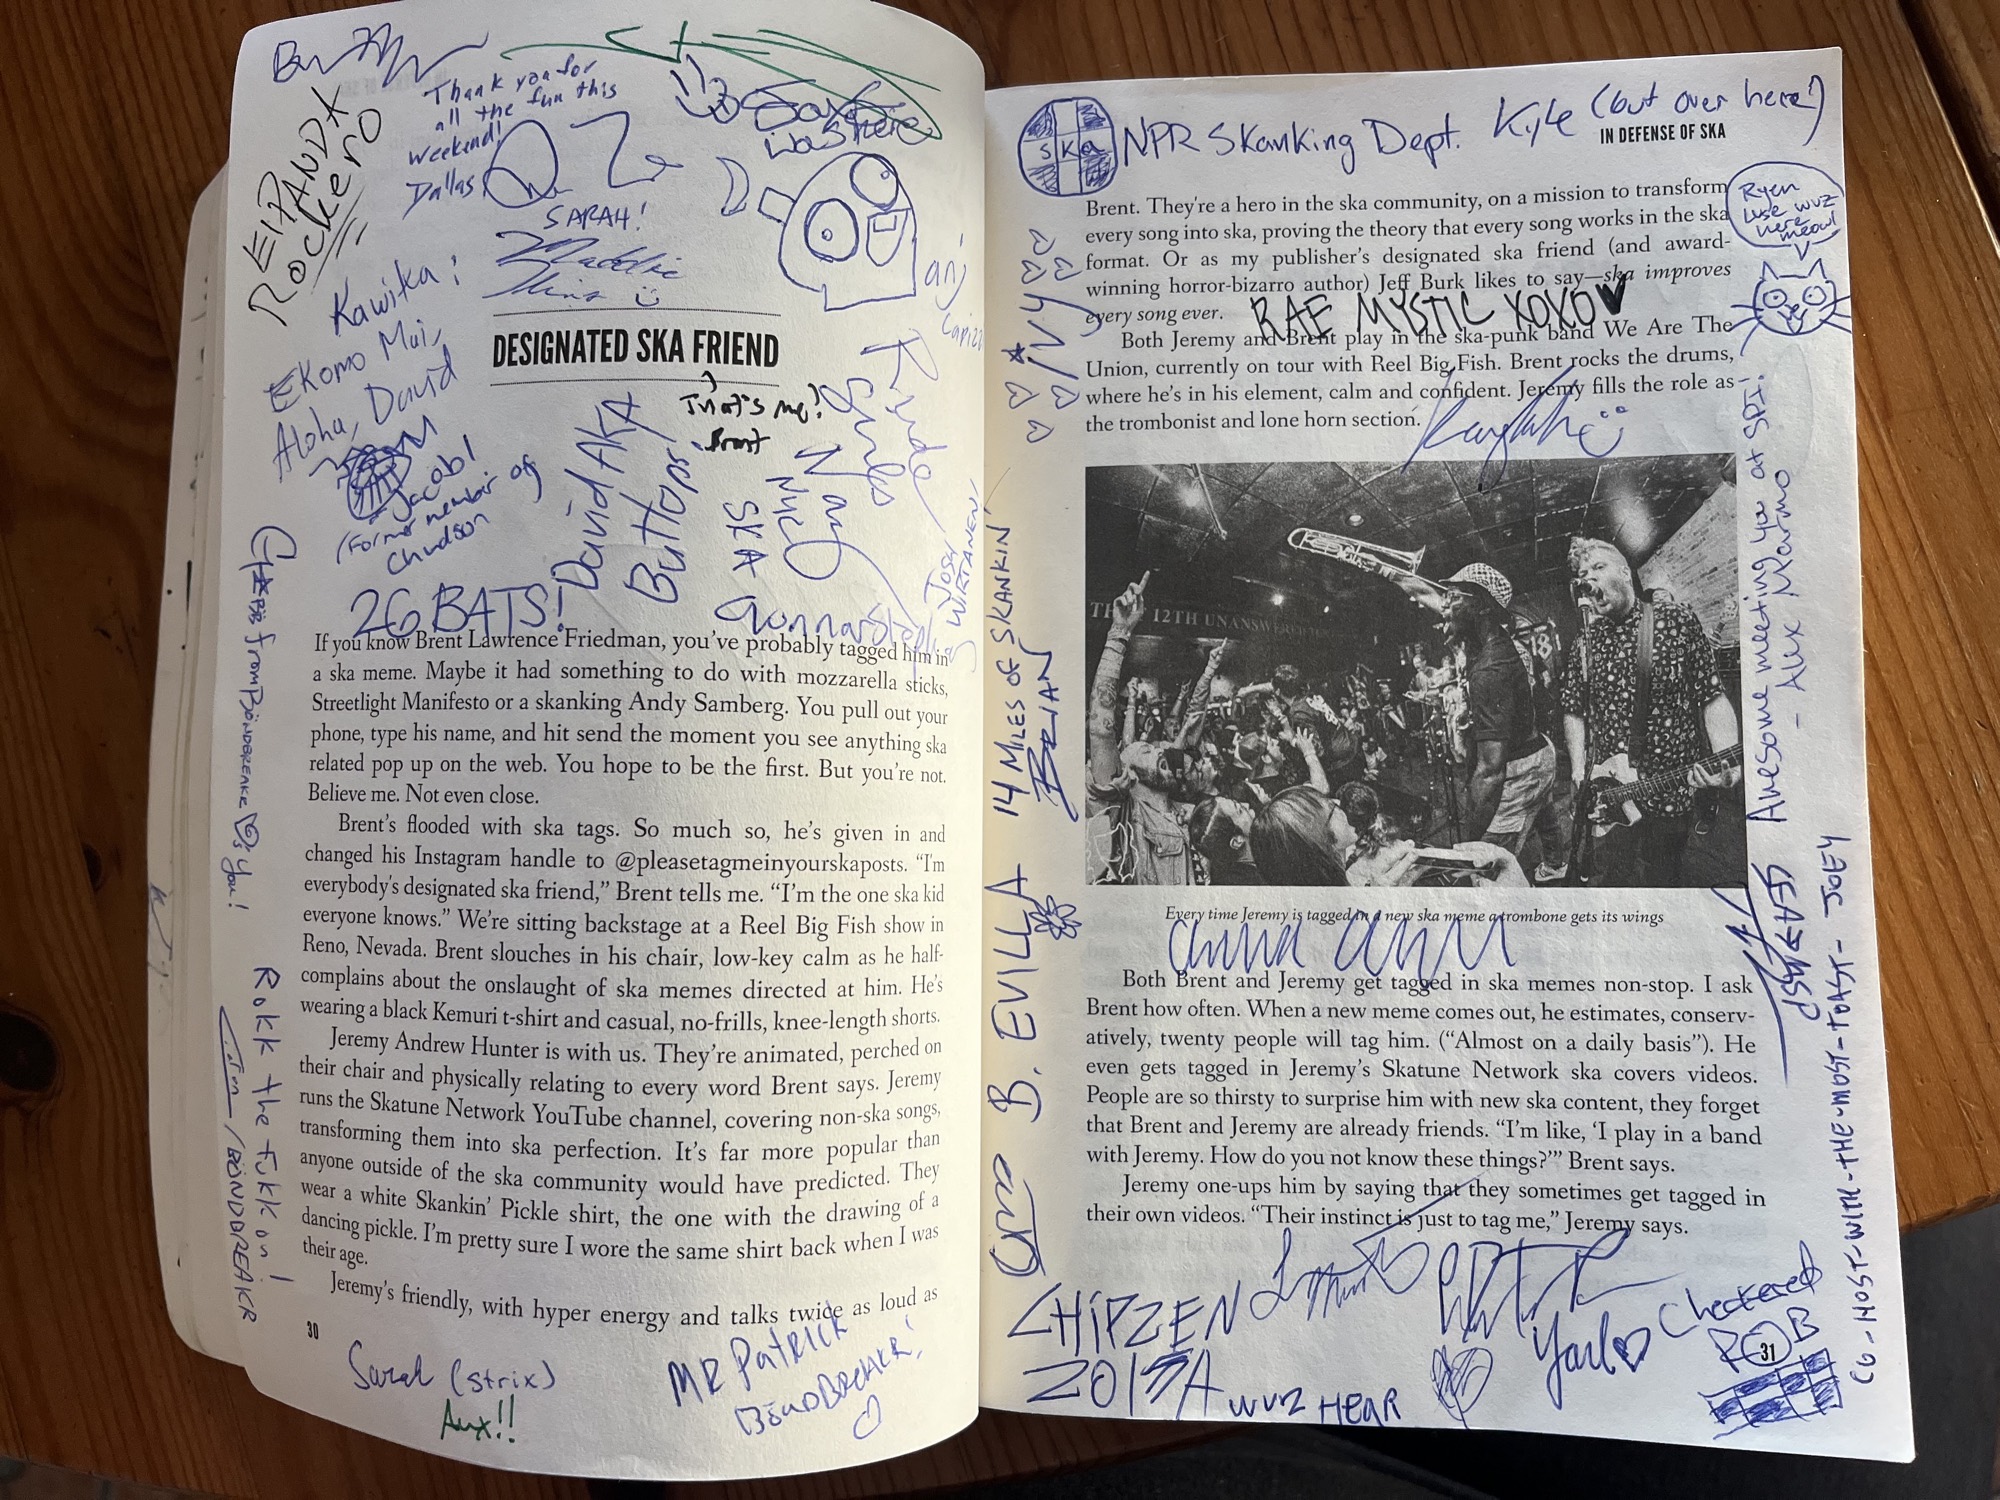 Thank you for
all the fun this
weekend!
Dallas
was here
El PANDA
Rockero
SARAH!
Maddie
Kawika!
Ekomo Mai,
Aloha, David
DESIGNATED SKA FRIEND
That's me!
Brent
Rude
Jacob!
(Former member of
Chudson
David AKA
Buttops!
SKA
JOSH
WIRTANEN!
26 BATS!
Gunnar
from BÖNDBREAKR
you!
If you know Brent Lawrence Friedman, you've probably tagged him in
a ska meme. Maybe it had something to do with mozzarella sticks,
Streetlight Manifesto or a skanking Andy Samberg. You pull out your
phone, type his name, and hit send the moment you see anything ska
related pop up on the web. You hope to be the first. But you're not.
Believe me. Not even close.
Brent's flooded with ska tags. So much so, he's given in and
changed his Instagram handle to @pleasetagmeinyourskaposts. "I'm
everybody's designated ska friend," Brent tells me. "I'm the one ska kid
everyone knows." We're sitting backstage at a Reel Big Fish show in
Reno, Nevada. Brent slouches in his chair, low-key calm as he half-
complains about the onslaught of ska memes directed at him. He's
wearing a black Kemuri t-shirt and casual, no-frills, knee-length shorts.
Jeremy Andrew Hunter is with us. They're animated, perched on
their chair and physically relating to every word Brent says. Jeremy
runs the Skatune Network YouTube channel, covering non-ska songs,
transforming them into ska perfection. It's far more popular than
anyone outside of the ska community would have predicted. They
wear a white Skankin' Pickle shirt, the one with the drawing of a
dancing pickle. I'm pretty sure I wore the same shirt back when I was
their age.
Jeremy's friendly, with hyper energy and talks twice as loud as
Rokk the fukk on!
/BÖNDBREAKR
30
Sarah (strix)
Aux!!
MR PATRICK
BÖNDBREAKR!
SKA
NPR Skanking Dept.
Kyle (but over here!)
IN DEFENSE OF SKA
Ryen
Luse wuz
here
meow!
Brent. They're a hero in the ska community, on a mission to transform
every song into ska, proving the theory that every song works in the ska
format. Or as my publisher's designated ska friend (and award-
winning horror-bizarro author) Jeff Burk likes to say—ska improves
every song ever.
RAE MYSTIC XOXO
Both Jeremy and Brent play in the ska-punk band We Are The
Union, currently on tour with Reel Big Fish. Brent rocks the drums,
where he's in his element, calm and confident. Jeremy fills the role as
the trombonist and lone horn section.
IVY
14 MILES OF SKANKIN'
BRIAN
B. EVILLA
THE 12TH UNANSWERED
Awesome meeting you at SPI!
- Alex Marino
Every time Jeremy is tagged in a new ska meme a trombone gets its wings
Both Brent and Jeremy get tagged in ska memes non-stop. I ask
Brent how often. When a new meme comes out, he estimates, conserv-
atively, twenty people will tag him. ("Almost on a daily basis"). He
even gets tagged in Jeremy's Skatune Network ska covers videos.
People are so thirsty to surprise him with new ska content, they forget
that Brent and Jeremy are already friends. "I'm like, 'I play in a band
with Jeremy. How do you not know these things?'" Brent says.
Jeremy one-ups him by saying that they sometimes get tagged in
their own videos. "Their instinct is just to tag me," Jeremy says.
CO-HOST-WITH-THE-MOST-TOAST-JOEY
CHIPZEN
WUZ HEAR
Checkered
ROB
31